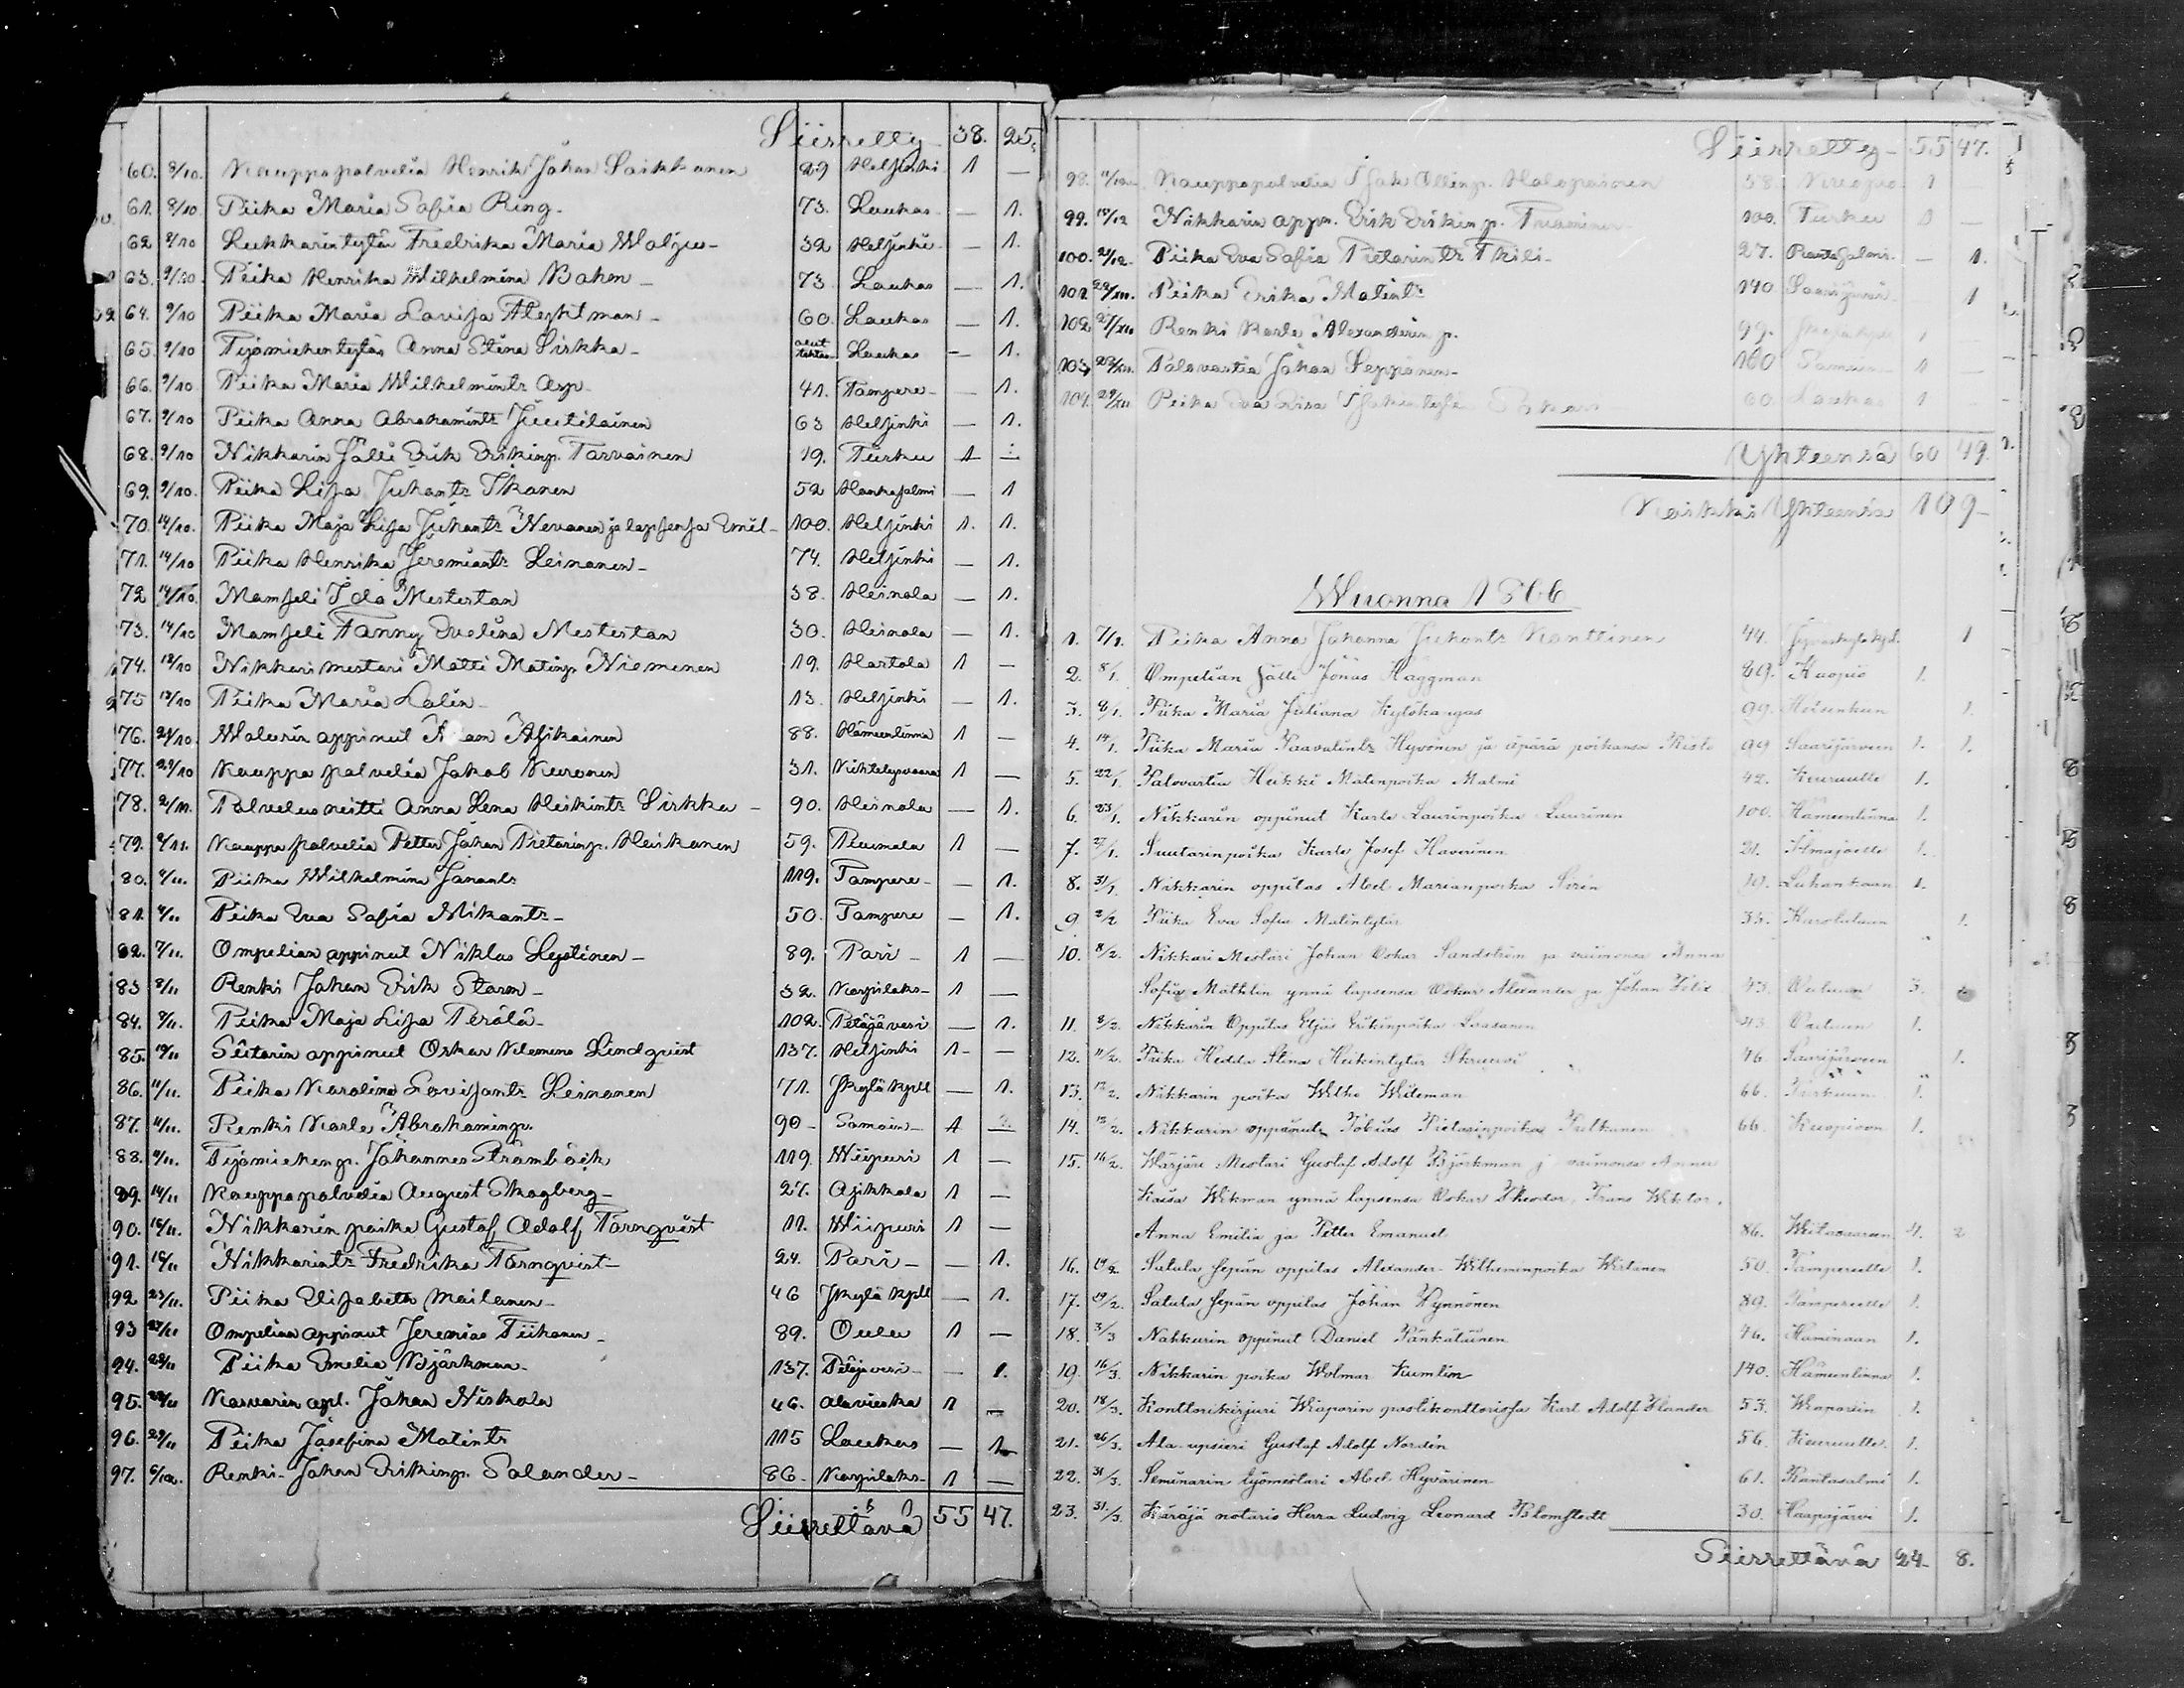 Siirretty 38. 25.
60. 8/10. Kauppapalvelia Henrik Johan Laikkanen 29 Helsinki 1 —
61. 8/10 Piika Maria Sofia Ring - 73. Laukas — 1.
62 8/10 Lukkarintytär Fredrika Maria Walju - 32 Helsinki — 1.
63. 9/10. Piika Henrika Wilhelmina Bohm - 73. Laukas — 1.
64. 9/10 Piika Maria Lovisa - 60. Laukas — 1.
65. 9/10 Työmiehentytär Anna Stina Sirkka - Laukas — 1.
66. 9/10 Piika Maria Wilhelmintr Asp - 41. Tampere — 1.
67. 9/10 Piika Anna Abrahamintr Juutilainen 63 Helsinki — 1.
68. 9/10 Nikkarin Sälli Erik Erikinp. Tarvainen 19. Turku 1 —
69. 9/10. Piika Lisa Juhantr Ikonen 52 Hankasalmi — 1
70. 14/10. Piika Maja Lisa Juhantr Nevanen ja lapsensa Emil - 100. Helsinki 1. 1.
71. 14/10 Piika Henrika Jeremiantr Leinonen - 74. Helsinki — 1.
72 14/10. Mamseli Ida Mesterton 38. Heinola — 1.
73. 14/10 Mamseli Fanny Evelina Mesterton 30. Heinola — 1.
74. 18/10 Nikkari mestari Matti Matinp. Nieminen 19. Hartola 1 —
75 18/10 Piika Maria Lalin - 13. Helsinki — 1.
76. 24/10. Malarin oppinut Asikainen 88. Hämeenlinna 1 —
77. 29/10 Kauppa palvelia Jakob Kuronen 31. Kiihtelysvaara 1 —
78. 2/11. Palvelus neitti Anna Lena Heikintr Sirkka - 90. Heinola — 1.
79. 4/11. Kauppa palvelia Petter Johan Pietarinp. Heiskanen 59. Puumala 1 —
80. 4/11. Piika Wilhelmina Janantr 119. Tampere — 1.
81. 4/11 Piika Eva Sofia Mikantr - 50. Tampere — 1.
82. 7/11. Ompelian oppinut Niklas Lystinen - 89. Pori - 1 —
83 8/11 Renki Johan Erik Storm - 32. Karpilaks - 1 —
84. 9/11. Piika Maja Lisa Perälä - 102. Petäjävesi — 1.
85. 10/11 Sutarin oppinut Oskar Klemens Lindqvist 137. Helsinki 1 - —
86. 11/11. Piika Karolina Lovisantr Leinonen 71. Jkylä kpll — 1.
87. 11/11. Renki Karle Abrahaminp. 90 - Somein - 1
88. 11/11. Työmiehenp. Johannes Strömbäck 119. Wiipuri 1 —
89. 14/11 Kauppapalvelia August Skogberg - 27. Asikkala 1 —
90. 18/11. Nikkarin poika Gustaf Adolf Törnqvist 11. Wiipuri 1 —
91. 18/11 Nikkarintr Fredrika Törnqvist - 24. Pori - — 1.
92 23/11. Piika Elisabeth Mailanen - 46 Jkylä kpll — 1.
93 27/11 Ompelian oppinut Jeremias Tiihonen - 89. Oulu 1 —
94. 28/11 Piika Emelia Björkman - 137. Petäjävesi - — 1.
95. 28/11 Karvarin opl. Johan Niskala 46. Alavieska 1 —
96. 29/11 Piika Josefina Matintr 115 Laukas — 1
97. 6/12. Renki - Johan Erikinp. Salander - 86 - Karpilaks - 1 —
Siirrettävä 55 47.
Siirretty - 55 47.
98. Kauppapalvelia Isak Ollinp. Halopainen 58. Kuopio 1 —
99. 18/12 Nikkarin oppn. Erik Erikinp. 100. Turku 1 —
100. 21/12. Piika Eva Sofia Pietarintr Thili - 27. Rantasalmi. — 1.
101 Piika Erika Matintr 140 Saarijärvi 1
102. Renki Karle Alexanderin p. 99. 1
103 Palovartia Johan Seppänen - 160 1 —
104. Piika Eva Lisa 60. Laukas 1 —
Yhteensä 60 49.
Kaikki Yhteensä 109 -
Wuonna 1866
1. 7/1. Piika Anna Johanna Juhontr Kanttinen 44. Jyväskylä kpl. 1
2. 8/1. Ompelian sälli Jonas Häggman 89. Kuopio 1.
3. 8/1. Piika Maria Juliana Kylökangas 99. 1.
4. 14/1. Piika Maria Paavalintr Hyvönen ja äpärä poikansa Risto 99 Saarijärveen 1. 1.
5. 22/1. Palovartia Heikki Matinpoika Malmi 42. Keuruulle 1.
6. 23/1. Nikkarin oppinut Karle Laurinpoika Laurinen 100. Hämeenlinna 1.
7. 27/1. Suutarinpoika Karle Josef Haverinen 21. Ilmajoelle 1.
8. 31/1. Nikkarin oppilas Abel Marianpoika Sirén 19. Luhankaan 1.
9 2/2 Piika Eva Sofia Matintytär 35. Karstulaan 1.
10. 8/2. Nikkari Mestari Johan Oskar Sandström ja vaimonsa Anna
Sofia Mathlin ynnä lapsensa Oskar Alexander ja Johan Felix 43. Ouluun 3.
11. 8/2. Nikkarin Oppilas Eljas Erikinpoika Laasanen 43 Ouluun 1.
12. 11/2. Piika Hedda Stina Heikintytär Skruuvi 46. Saarijärveen 1.
13. 12/2. Nikkarin poika Wilho Wideman 66. Turkuun 1.
14. 12/2. Nikkarin oppinut Tobias Pietarinpoika Pulkkanen 66. Kuopioon 1.
15. 14/2. Wärjäri Mestari Gustaf Adolf Björkman j vaimonsa Anna
Kaisa Wikman ynnä lapsensa Oskar Theodor, Frans Wiktor,
Anna Emilia ja Petter Emanuel 86. Wiitasaareen 4. 2
16. 14/2. Satula sepän oppilas Alexander Wilheminpoika Wirtanen 50. Tampereelle 1.
17. 19/2. Satula sepän oppilas Johan Kynnönen 89. Tampereelle 1.
18. 3/3 Nahkurin oppinut Daniel Pänkäläinen 46. Haminaan 1.
19. 16/3. Nikkarin poika Wolmar Kumlin 140. Hämeenlinna 1.
20. 18/3. Konttorikirjuri Wiaporin postikonttorissa Karl Adolf Flander 53. Wiaporiin 1.
21. 26/3. Ala-upsieri Gustaf Adolf Nordén 56. Keuruulle. 1.
22. 31/3. Seminarin työmestari Abel Hyvärinen 61. Rantasalmi 1.
23. 31/3. Käräjä notario Herra Ludvig Leonard Blomstedt 30. Haapajärvi 1.
Siirrettävä 24 8.